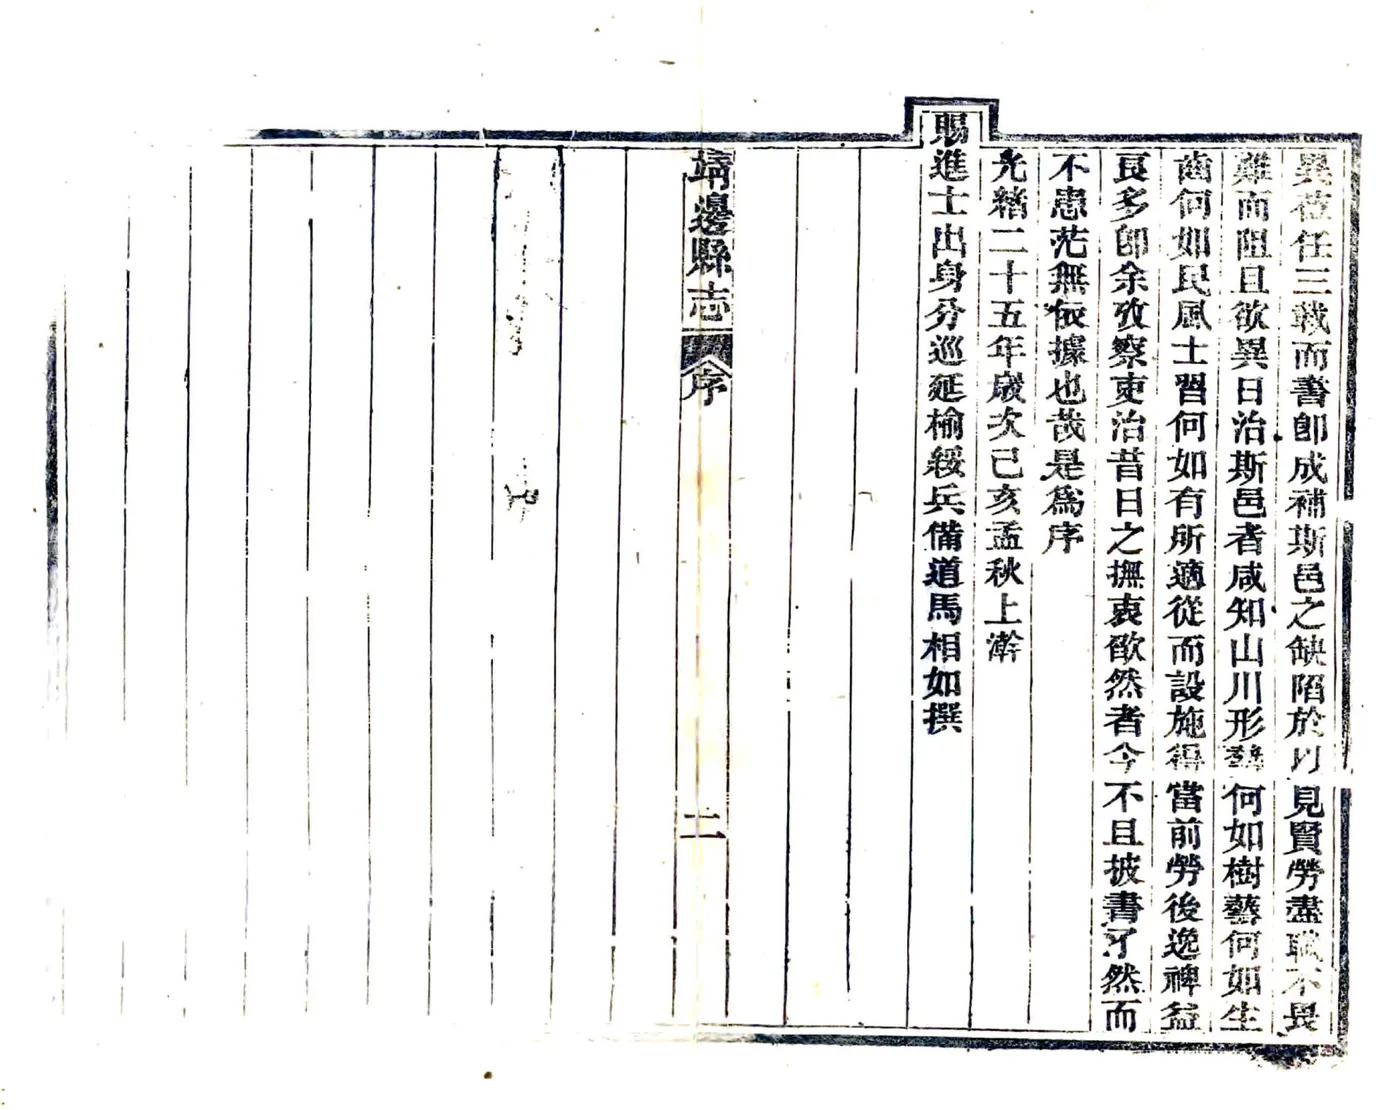 異莅任三載而書卽成補斯邑之缺陷於以見賢勞盡職不畏
難而阻且欲異日治斯邑者咸知山川形勢何如樹藝何如生
齒何如民風士習何如有所適從而設施得當前勞後逸裨益
良多卽余攷察吏治昔日之撫衷欿然者今不且披書孑然而
不患茫無依據也哉是爲序
光緖二十五年歲次己亥孟秋上澣
賜進士出身分巡延榆綏兵備道馬相如撰
靖邊縣志 序 二